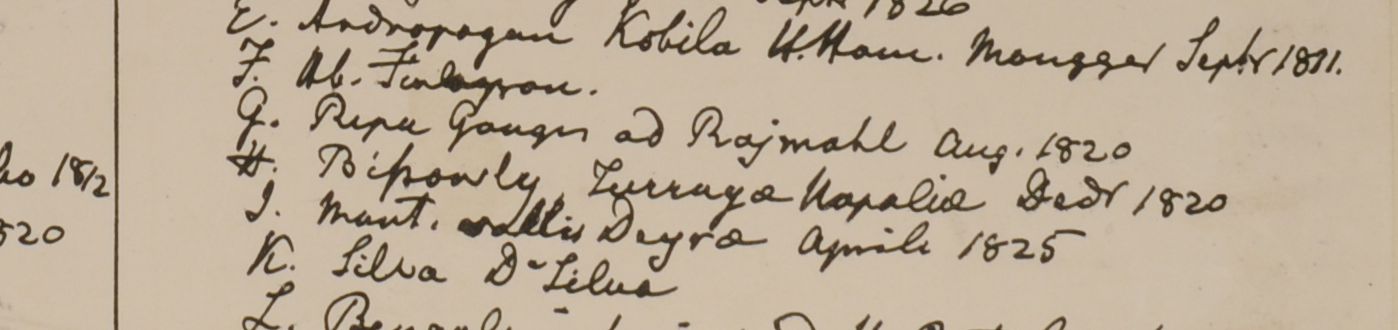 Septr 1826
E. Andropogon Kobila H.Ham. Mongger Septr 1811.
F. Hb. Finlayson.
G. Ripa Gangis ad Rajmahl Aug. 1820
ho 1812
H. Bissowly, Turraya Napaliæ Decbr 1820
520
I. Mont. vallis Deyræ Aprile 1825
K. Silva D-Silva
L.